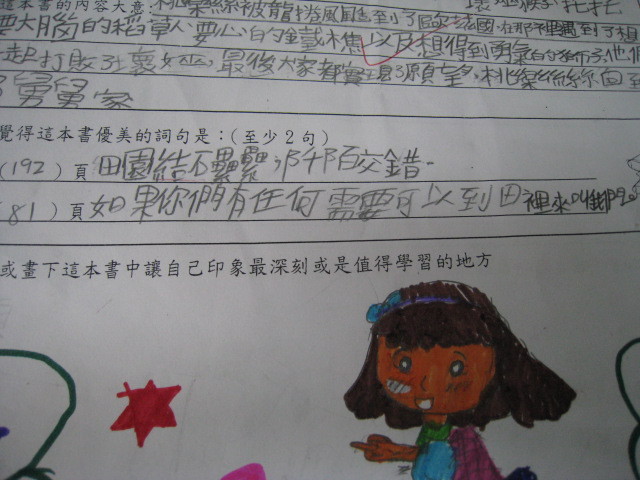 這本書的內容大意:桃樂絲被龍捲風風刮到了歐法國,在那裡遇到了想
要大腦的稻草人、要心的鐵樵,以及想得到勇氣的獅子,他們
一起打敗了壞女巫,最後大家都實現了願望,桃樂絲絲回到
舅舅家
覺得這本書優美的詞句是:(至少2句)
(192)頁 田園結石纍纍,阡陌交錯。
(81)頁如果你們有任何需要可以到田裡來叫我們
或畫下這本書中讓自己印象最深刻或是值得學習的地方